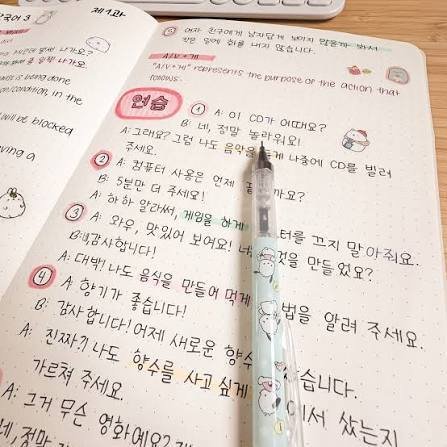 국어 3
제1과
⑤ 여자 친구에게 남자답게 보이지 않을까 봐서
작은 일에 화를 내지 않습니다.
나가요?
나가요.
A/V + 게
is being done
"A/V + 게" represents the purpose of the action that
follows.
condition, in the
will be blocked
연습
① A: 이 CD가 어때요?
B: 네, 정말 놀라워요!
A: 그래요? 그럼 나도 음악을 듣게 나중에 CD를 빌려
주세요.
② A: 컴퓨터 사용은 언제 까요?
B: 5분만 더 주세요!
A: 하하 알라써, 게임을 하게 터를 끄지 말아줘요.
③ A: 와우, 맛있어 보여요! 것을 만들었요?
B: 감사합니다!
A: 대박! 나도 음식을 만들어 먹게 법을 알려 주세요.
④ A: 향기가 좋습니다!
B: 감사합니다! 어제 새로운 향수 습니다.
A: 진짜? 나도 향수를 사고 싶게 에서 샀는지
가르쳐 주세요.
A: 그거 무슨 영화예요?
네, 정말